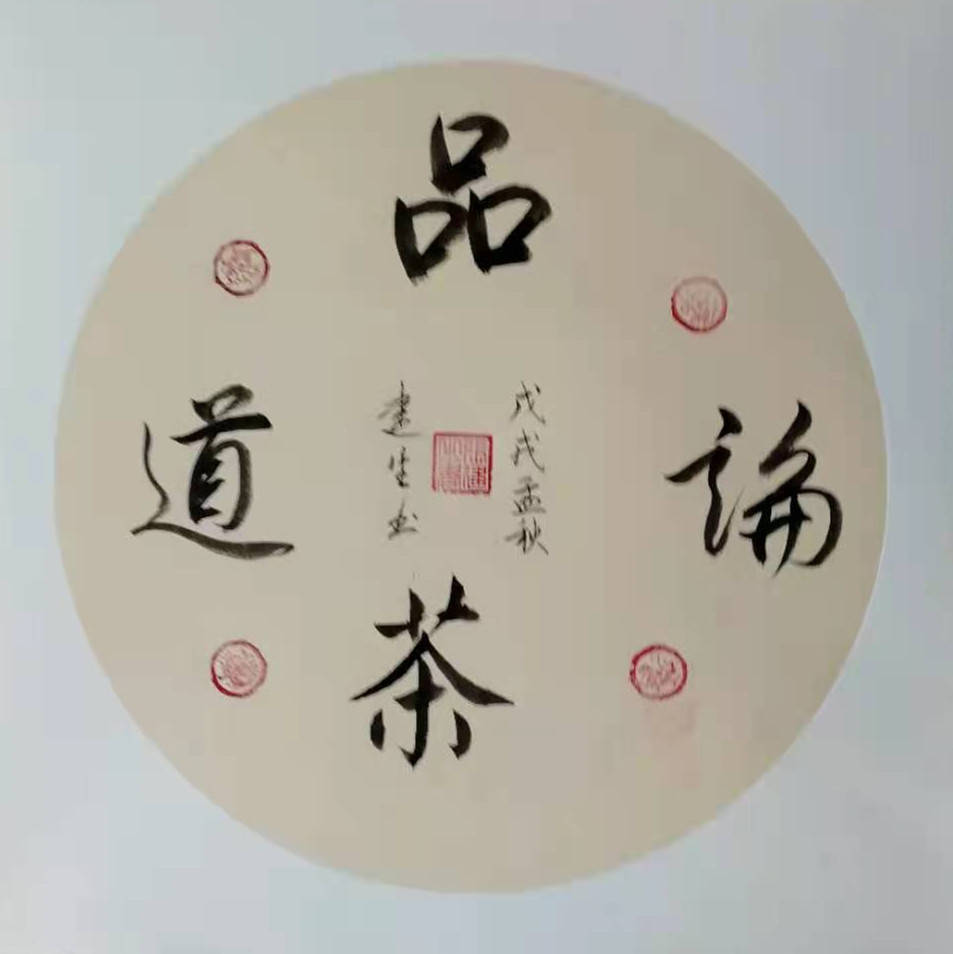 品
論
茶
道
戊戌孟秋
建生书